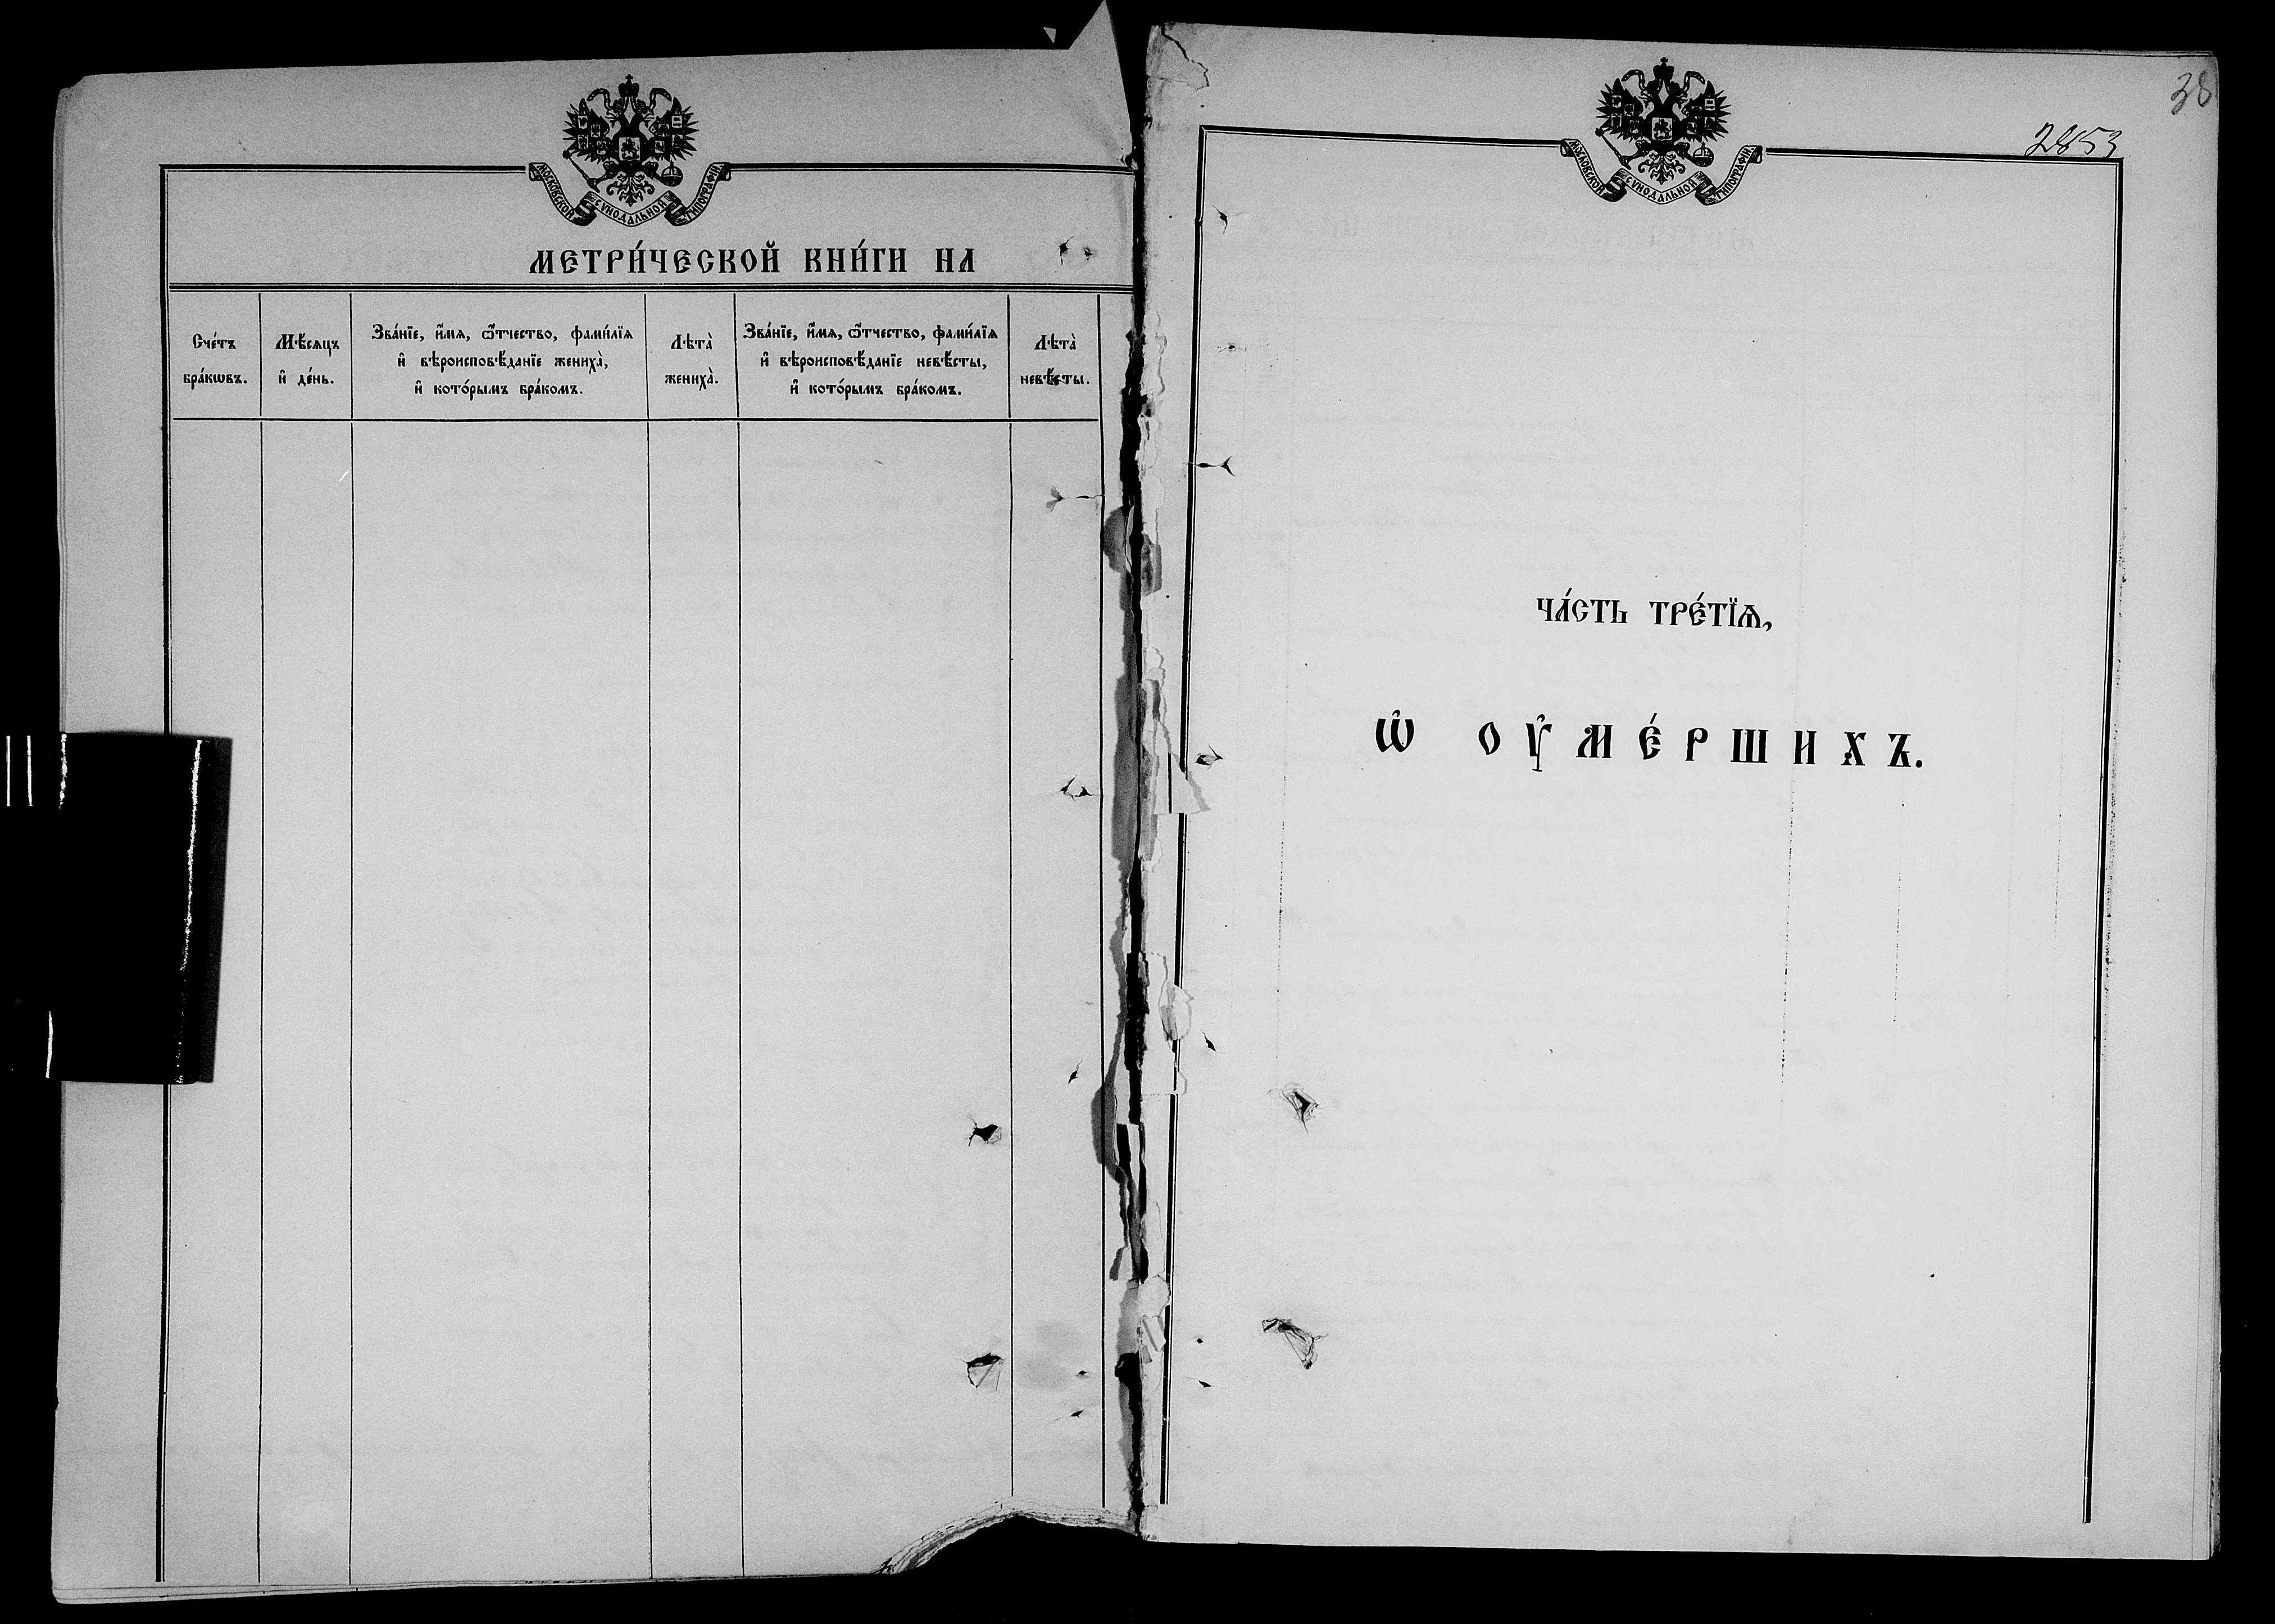 МОСКОВСКОЙ СУНОДАЛЬНОЙ ТИПОГРАФІИ.
МЕТРИ́ЧЕСКОЙ КНИ́ГИ НА
Сче́тъ
бра́кѡвъ.
Мѣ́сяцъ
и҆ де́нь.
Зва́нїе, и҆́мѧ, ѻ҆́тчество, фами́лїѧ
и҆ вѣроисповѣ́данїе жениха̀,
и҆ кото́рымъ бра́комъ.
Лѣта̀
жениха̀.
Зва́нїе, и҆́мѧ, ѻ҆́тчество, фами́лїѧ
и҆ вѣроисповѣ́данїе невѣ́сты,
и҆ кото́рымъ бра́комъ.
Лѣта̀
невѣ́сты.
38
2853
МОСКОВСКОЙ СУНОДАЛЬНОЙ ТИПОГРАФІИ.
ЧА́СТЬ ТРЕ́ТЇѦ,
Ѡ҆ ОУ҆МЕ́РШИХЪ.